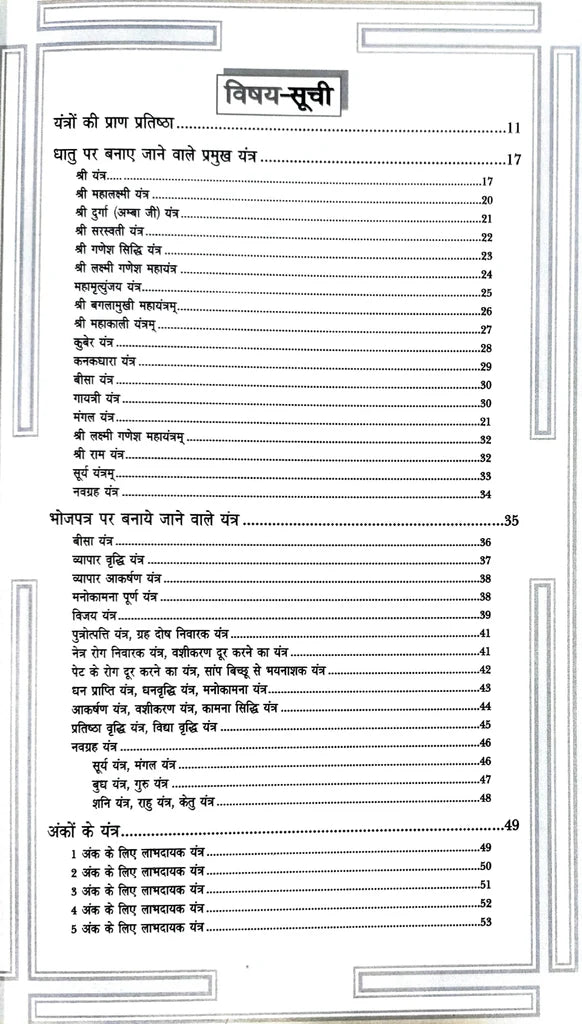 विषय-सूची
यंत्रों की प्राण प्रतिष्ठा....................11
धातु पर बनाए जाने वाले प्रमुख यंत्र....................17
श्री यंत्र....................17
श्री महालक्ष्मी यंत्र....................20
श्री दुर्गा (अम्बा जी) यंत्र....................21
श्री सरस्वती यंत्र....................22
श्री गणेश सिद्धि यंत्र....................23
श्री लक्ष्मी गणेश महायंत्र....................24
महामृत्युंजय यंत्र....................25
श्री बगलामुखी महायंत्रम्....................26
श्री महाकाली यंत्रम्....................27
कुबेर यंत्र....................28
कनकधारा यंत्र....................29
बीसा यंत्र....................30
गायत्री यंत्र....................30
मंगल यंत्र....................21
श्री लक्ष्मी गणेश महायंत्रम्....................32
श्री राम यंत्र....................32
सूर्य यंत्रम्....................33
नवग्रह यंत्र....................34
भोजपत्र पर बनाये जाने वाले यंत्र....................35
बीसा यंत्र....................36
व्यापार वृद्धि यंत्र....................37
व्यापार आकर्षण यंत्र....................38
मनोकामना पूर्ण यंत्र....................38
विजय यंत्र....................39
पुत्रोत्पत्ति यंत्र, ग्रह दोष निवारक यंत्र....................41
नेत्र रोग निवारक यंत्र, वशीकरण दूर करने का यंत्र....................41
पेट के रोग दूर करने का यंत्र, सांप बिच्छू से भयनाशक यंत्र....................42
धन प्राप्ति यंत्र, धनवृद्धि यंत्र, मनोकामना यंत्र....................43
आकर्षण यंत्र, वशीकरण यंत्र, कामना सिद्धि यंत्र....................44
प्रतिष्ठा वृद्धि यंत्र, विद्या वृद्धि यंत्र....................45
नवग्रह यंत्र....................46
सूर्य यंत्र, मंगल यंत्र....................46
बुध यंत्र, गुरु यंत्र....................47
शनि यंत्र, राहु यंत्र, केतु यंत्र....................48
अंकों के यंत्र....................49
1 अंक के लिए लाभदायक यंत्र....................49
2 अंक के लिए लाभदायक यंत्र....................50
3 अंक के लिए लाभदायक यंत्र....................51
4 अंक के लिए लाभदायक यंत्र....................52
5 अंक के लिए लाभदायक यंत्र....................53